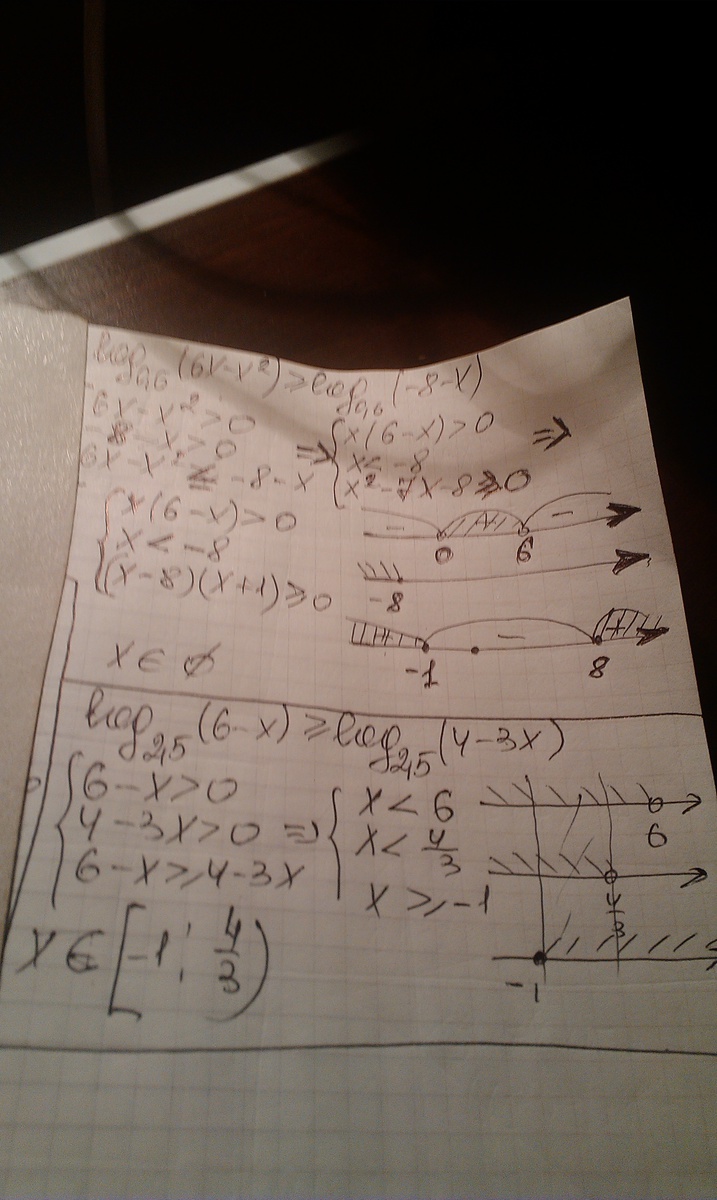 log₀,₆(6x-x²) ≥ log₀,₆(-8-x)
6x-x²>0
-8-x>0
6x-x² ≤ -8-x
⇒ { x(6-x)>0
x<-8
x²-7x-8≥0 ⇒
{ x(6-x)>0
x<-8
(x-8)(x+1)≥0
- + -
0 6
-8
+ - +
-1 8
x∈∅
log₂,₅(6-x) ≥ log₂,₅(4-3x)
{ 6-x>0
4-3x>0
6-x≥4-3x
⇒ { x<6
x<4/3
x≥-1
6
4/3
-1
x∈[-1; 4/3)